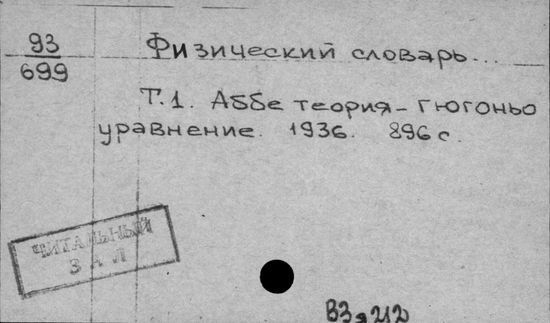 93
699
Физический словарь...
Т.1. Аббе теория - Гюгоньо
уравнение. 1936. 896 с.
ЧИТАЛЬНЫЙ
ЗАЛ